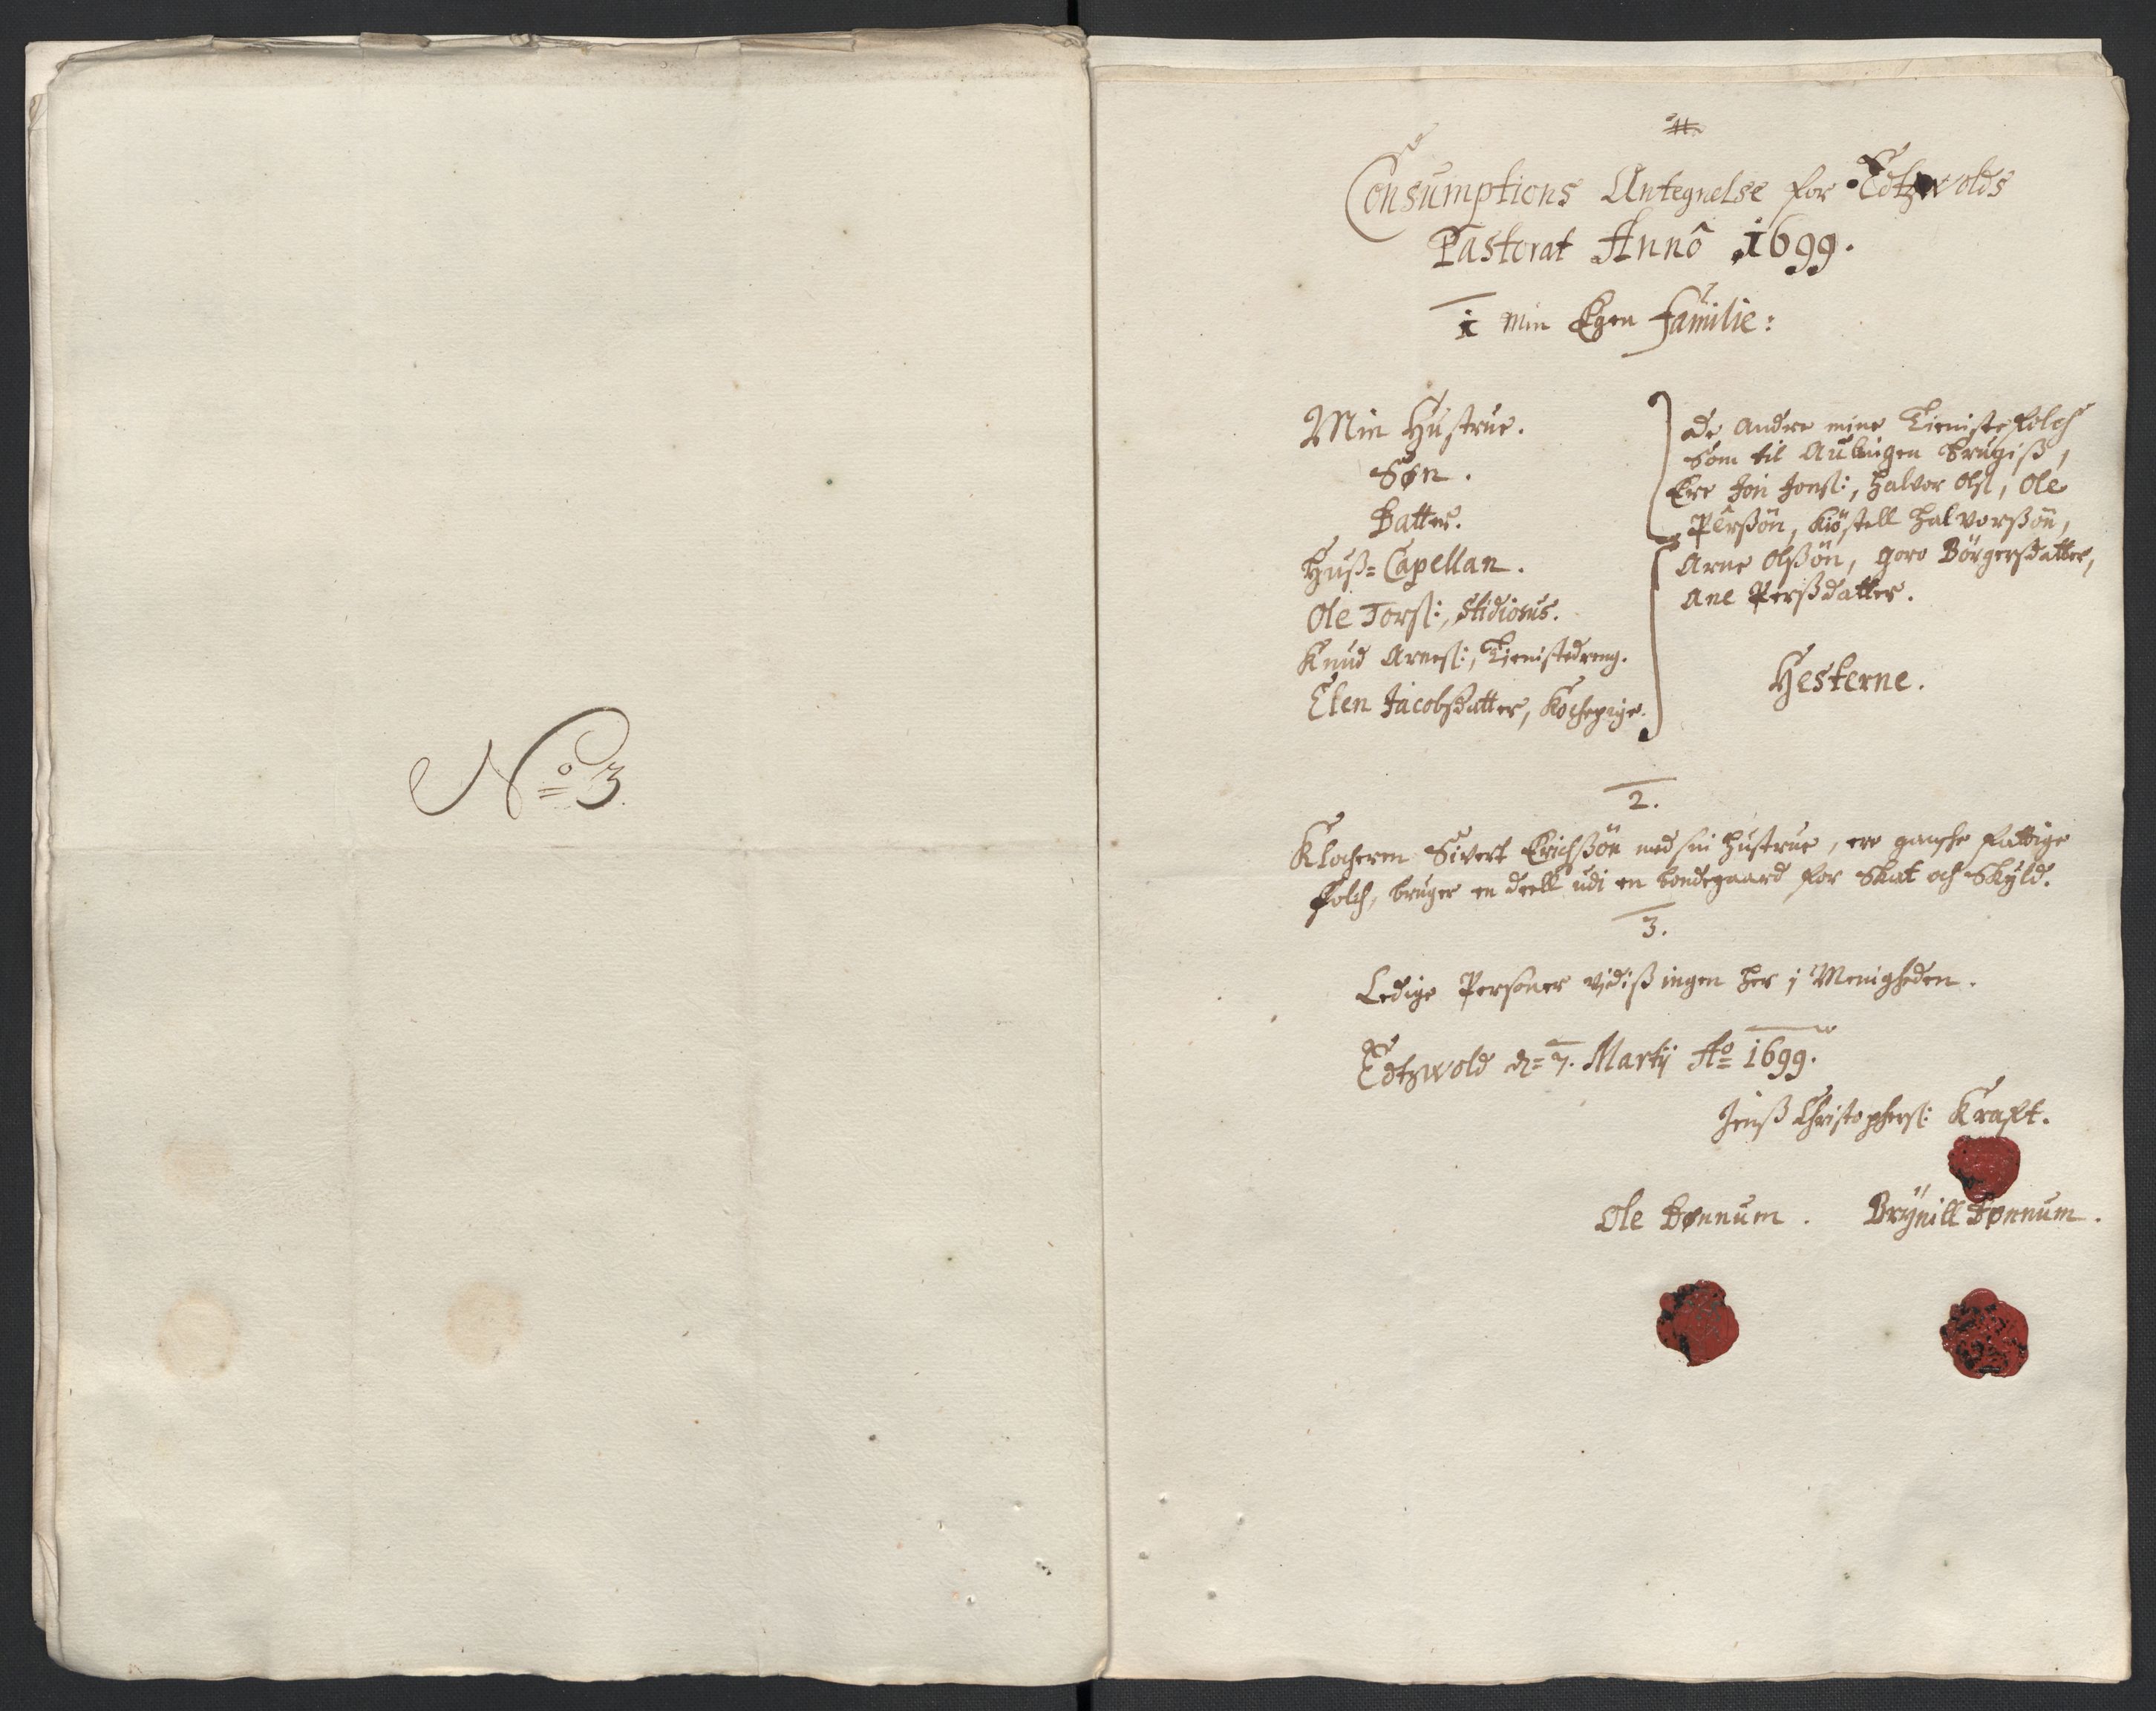 No 3.
Consumptions Antegnelse for Edtzwolds
Pastorat Annô 1699.
1 Min Egen Familie:
Min Hustrue.
Søn.
Datter.
Huß-Capellan.
Ole Torss:, Studiosus.
Knud Arness:, Tienistedreng.
Elen Jacobsdatter, Kochepige.
De andre mine Tienistefolch
som til Aulingen brugiß,
Ere Jon Jonss:, Halvor Olss, Ole
Perßön, Kiöstell Halvorßön,
Arne Olßön, Goro Börgersdatter,
Ane Perßdatter.
Hesterne.
2.
Klocheren Sivert Erichßön med sin Hustrue, ere ganshe fattige
folch, bruger en deell udi en bondegaard for Skat och Skyld.
3.
Ledige Personer vidiß ingen her j Menigheden.
Edtzwold d= 7. Martij Ao 1699.
Jenß Christophers: Kraft.
Ole Dønnum. Brynill Dønnum.